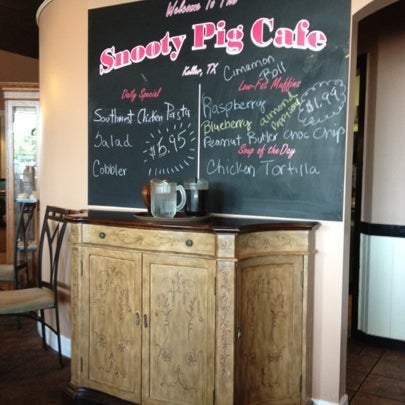 Welcome To The
Snooty Pig Cafe
Keller, TX
Daily Special
Southwest Chicken Pasta
Salad
$5.95
Cobbler
Cinnamon
Roll
Low-Fat Muffins
Raspberry
Blueberry almond
Peanut Butter Choc Chip
$1.99
Soup of the Day
Chicken Tortilla